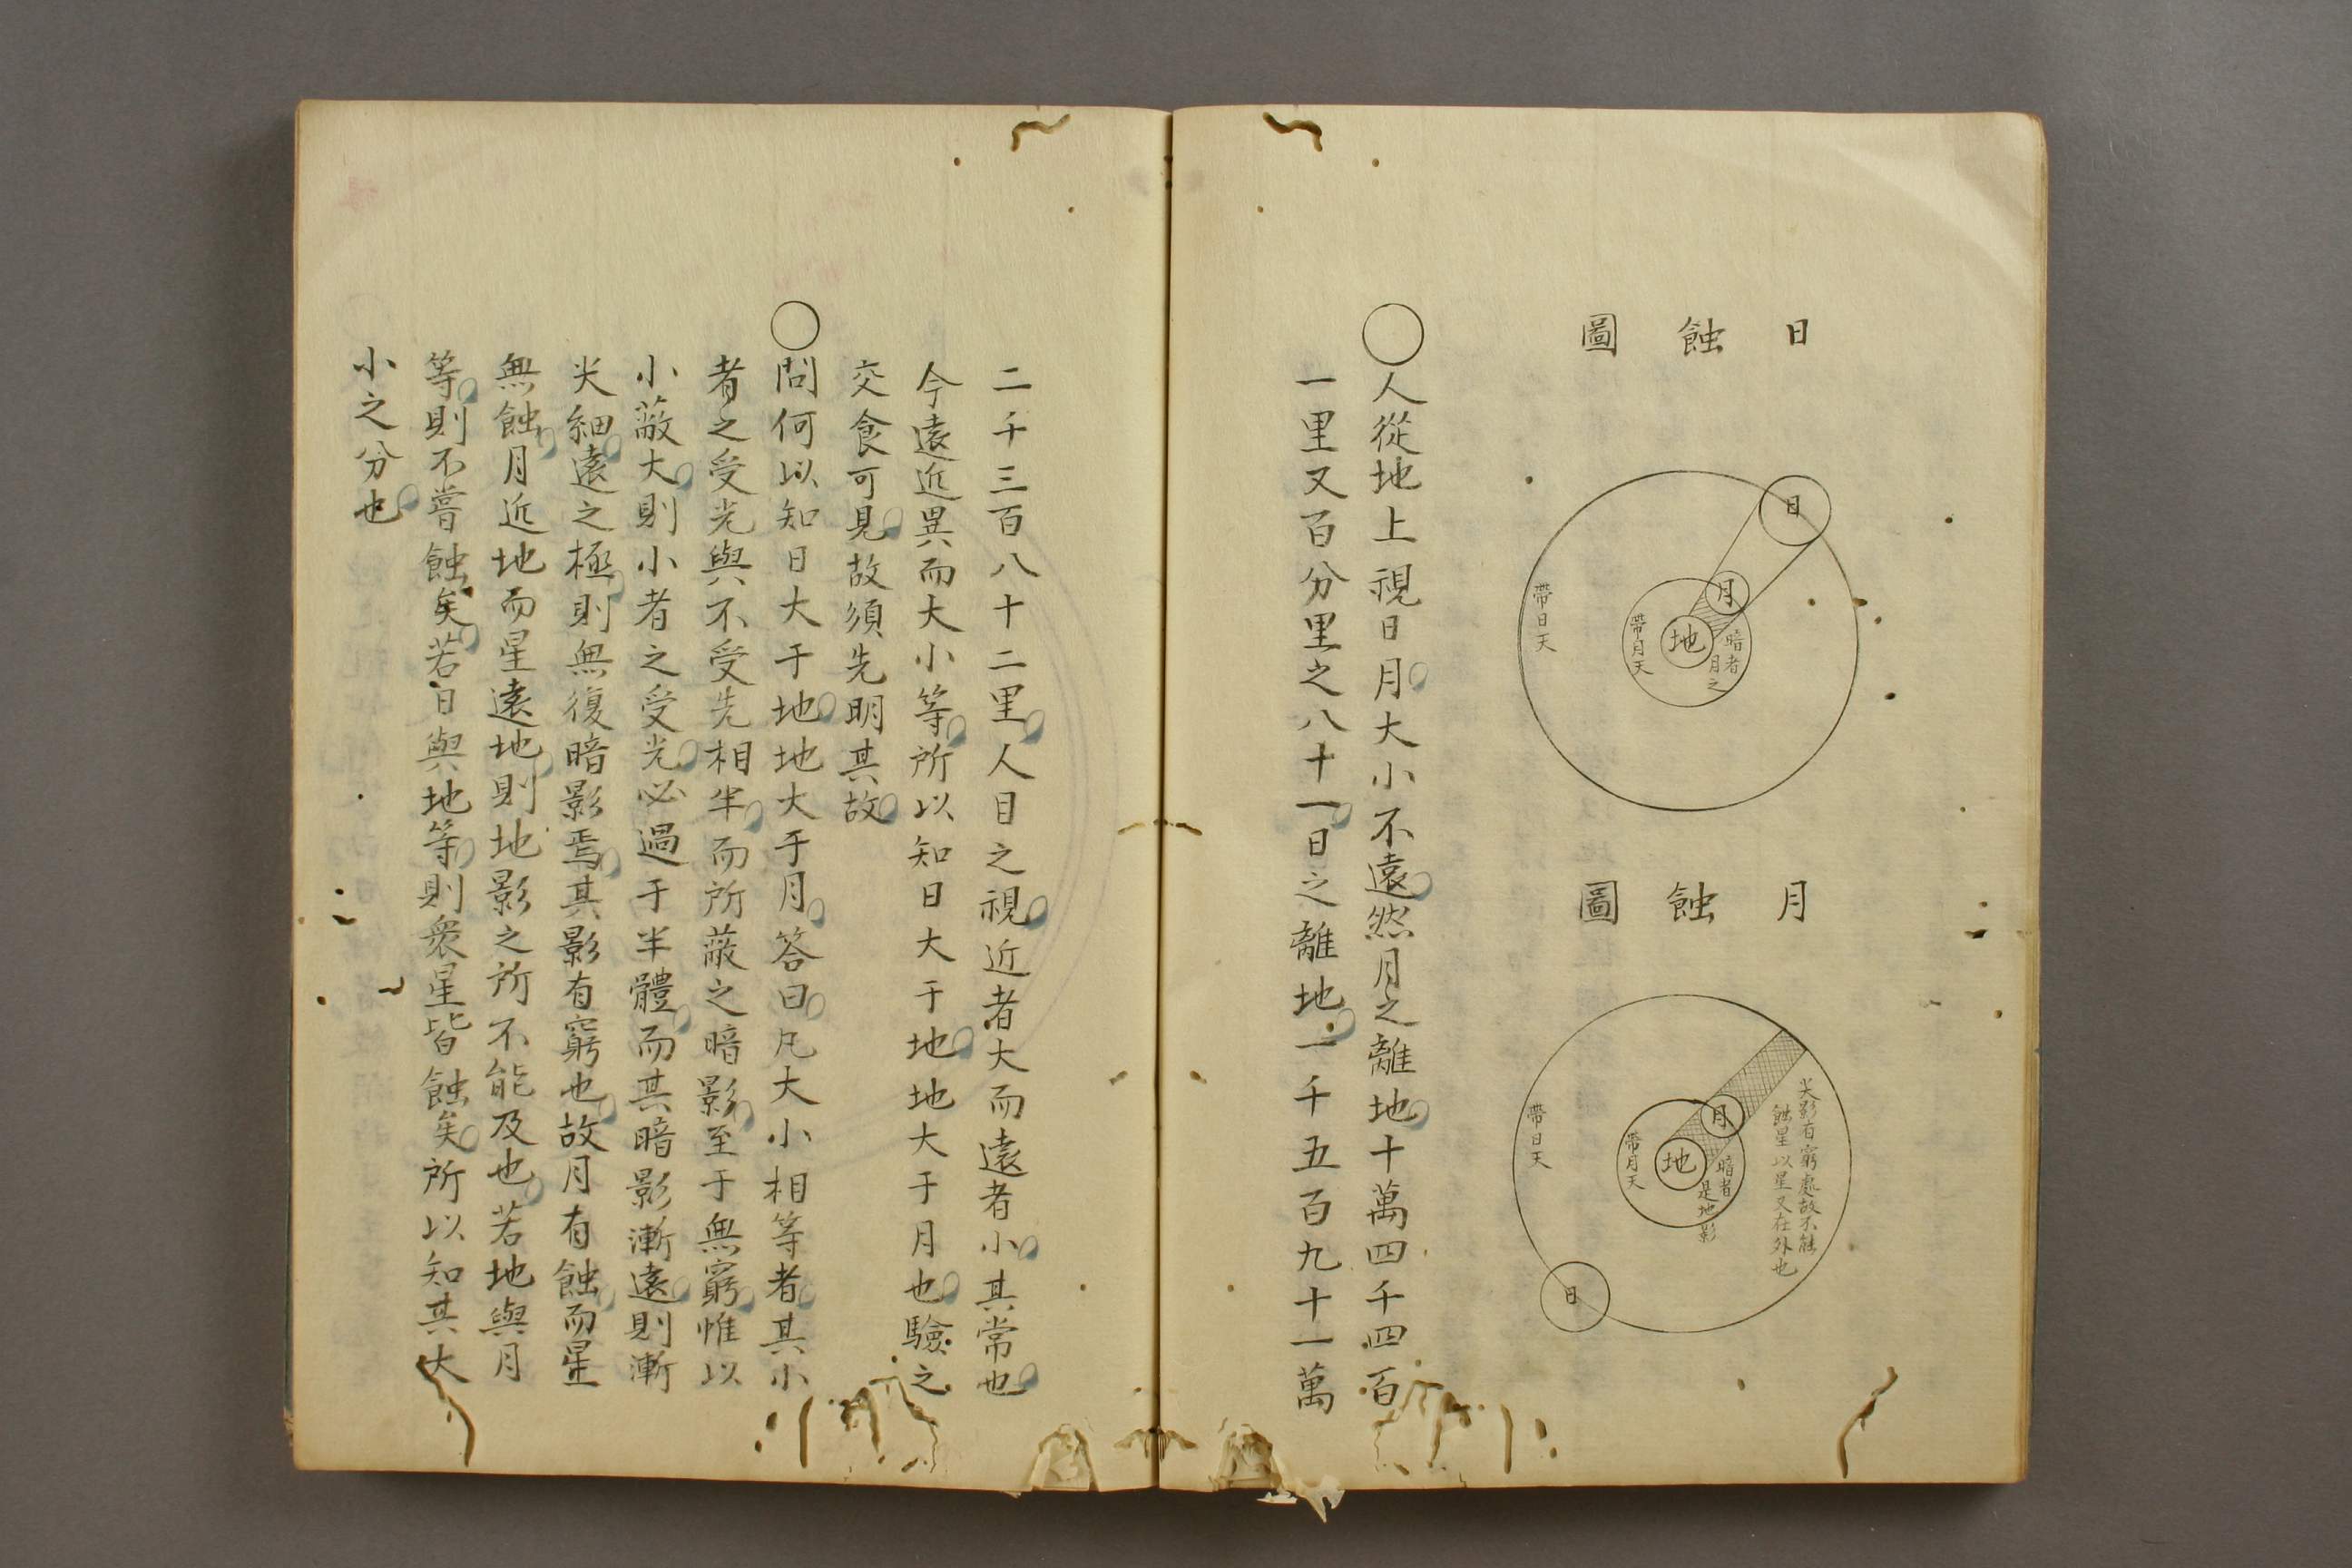 日蝕圖
日
月
地
暗者
月之
帶月天
帶日天
月蝕圖
尖影有窮處故不能
蝕星以星又在外也
月
地
暗者
是地影
帶月天
帶日天
日
◯人從地上視日月大小不遠然月之離地十萬四千四百
一里又百分里之八十一日之離地一千五百九十一萬
二千三百八十二里人目之視近者大而遠者小其常也
今遠近異而大小等所以知日大于地地大于月也驗之
交食可見故須先明其故
◯問何以知日大于地地大于月答曰凡大小相等者其小
者之受光與不受先相半而所蔽之暗影至于無窮惟以
小蔽大則小者之受光必過于半體而其暗影漸遠則漸
尖細遠之極則無復暗影焉其影有窮也故月有蝕而星
無蝕月近地而星遠地則地影之所不能及也若地與月
等則不嘗蝕矣若日與地等則衆星皆蝕矣所以知其大
小之分也